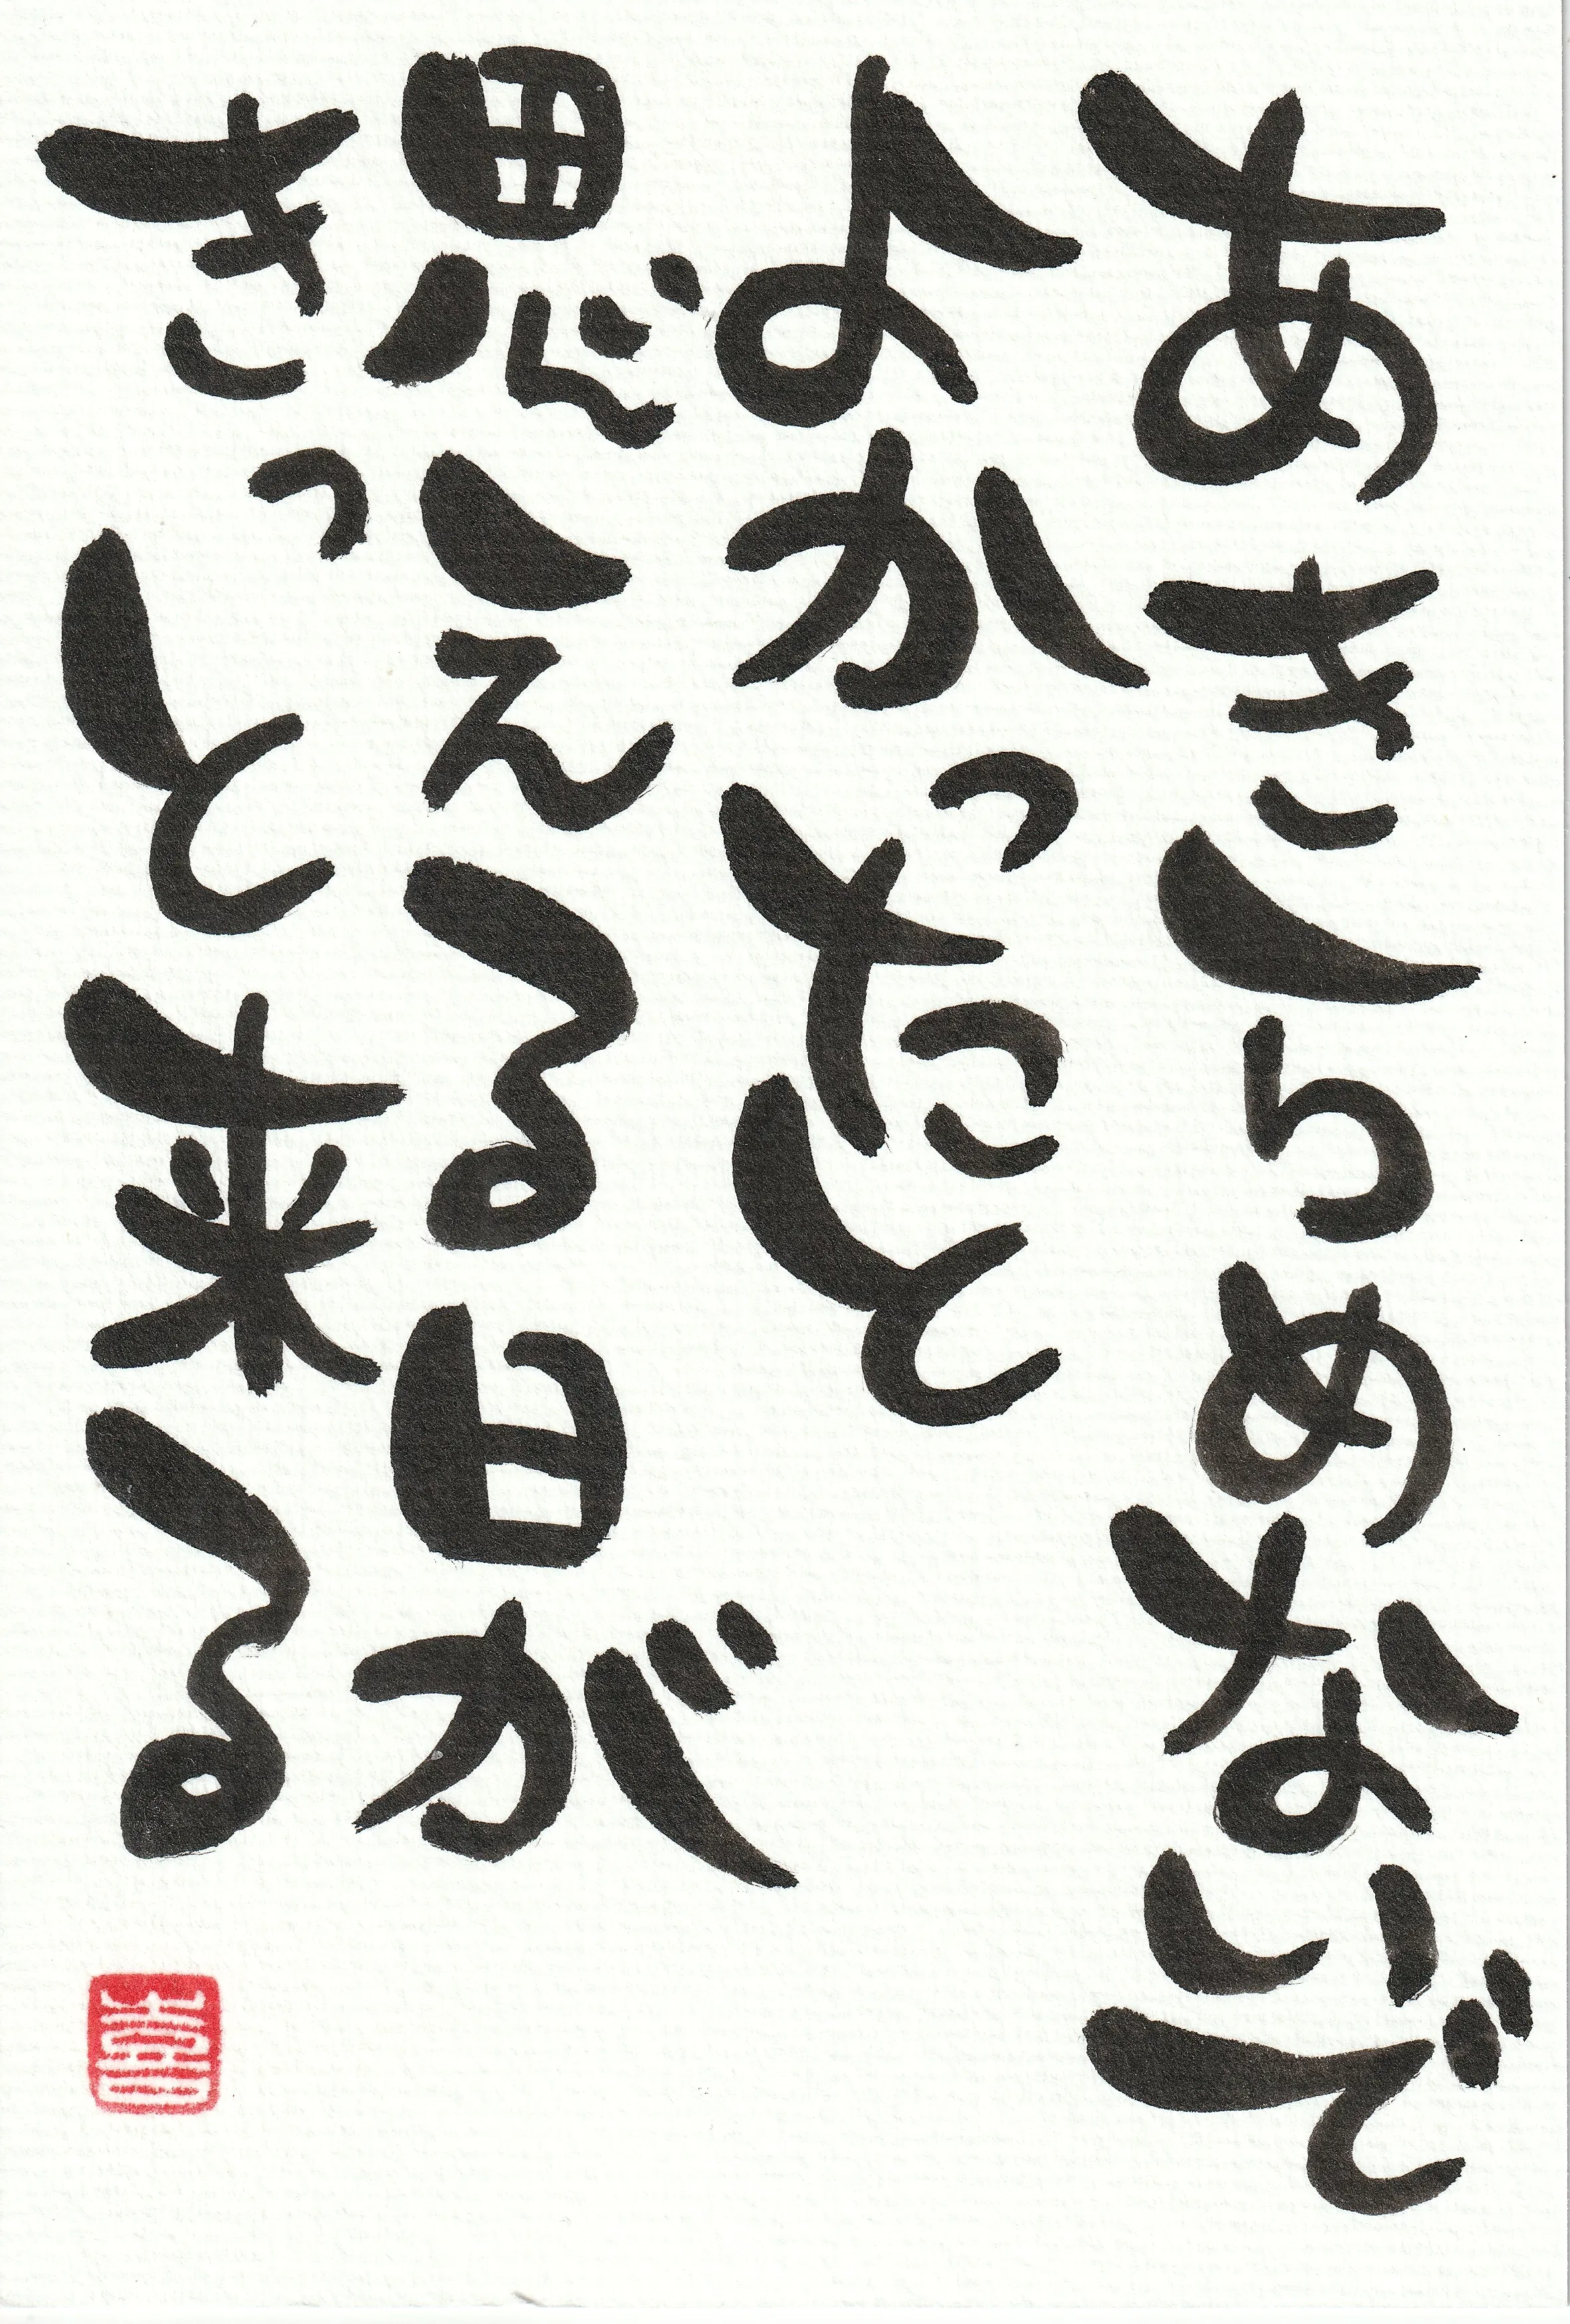 あきらめないで
よかったと
思える日が
きっと来る